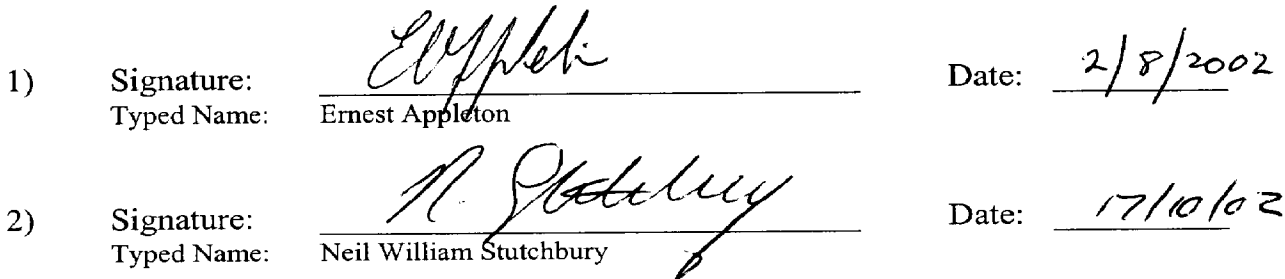 1) Signature: EAppleton Date: 2/8/2002
Typed Name: Ernest Appleton
2) Signature: N. Stutchbury Date: 17/10/02
Typed Name: Neil William Stutchbury